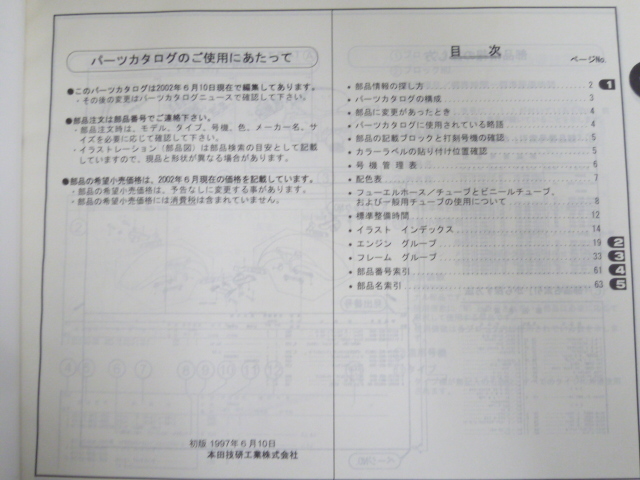 パーツカタログのご使用にあたって
●このパーツカタログは2002年6月10日現在で編集してあります。
・その後の変更はパーツカタログニュースで確認して下さい。
●部品注文は部品番号でご連絡下さい。
・部品注文時は、モデル、タイプ、号機、色、メーカー名、サ
イズを必要に応じて確認して下さい。
・イラストレーション（部品図）は部品検索の目安として記載
していますので、現品と形状が異なる場合があります。
●部品の希望小売価格は、2002年6月現在の価格を記載しています。
・部品の希望小売価格は、予告なしに変更する事があります。
・部品の希望小売価格には消費税は含まれていません。
初版 1997年6月10日
本田技研工業株式会社
目 次
ページNo.
・部品情報の探し方 2 1
・パーツカタログの構成 3
・部品に変更があったとき 4
・パーツカタログに使用されている略語 4
・部品の記載ブロックと打刻号機の確認 5
・カラーラベルの貼り付け位置確認 5
・号機管理表 6
・配色表 7
・フューエルホース／チューブとビニールチューブ、
および一般用チューブの使用について 8
・標準整備時間 12
・イラスト インデックス 14
・エンジン グループ 19 2
・フレーム グループ 33 3
・部品番号索引 61 4
・部品名索引 63 5